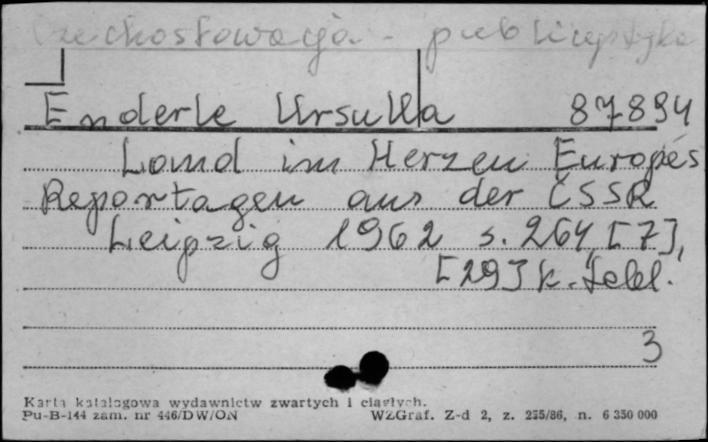 Czechosłowacja - publicystyka
Enderle Ursulla 87894
Land im Herzen Europas
Reportagen aus der ČSSR
Leipzig 1962 s. 264, [7],
[29] k. tabl.
3
Karta katalogowa wydawnictw zwartych i ciągłych.
Pu-B-144 zam. nr 446/DW/ON WZGraf. Z-d 2, z. 255/86, n. 6 350 000